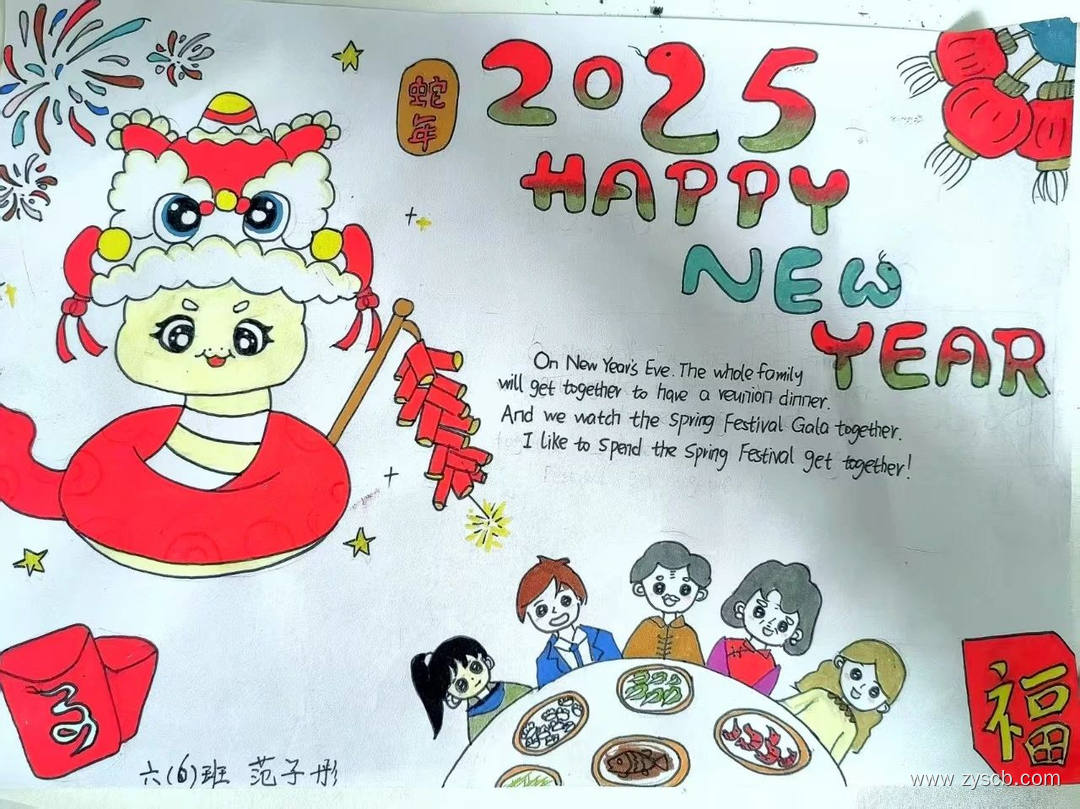 蛇年
2025
HAPPY
NEW
YEAR
On New Year's Eve. The whole family
will get together to have a reunion dinner.
And we watch the Spring Festival Gala together.
I like to spend the Spring Festival get together!
福
六(6)班 范子彤
www.zyscb.com